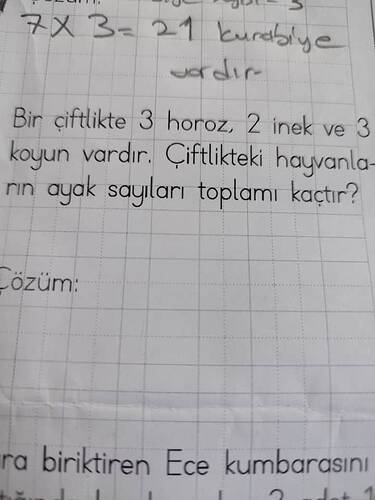 7 x 3 = 21 kurabiye
vardır
Bir çiftlikte 3 horoz, 2 inek ve 3
koyun vardır. Çiftlikteki hayvanla-
rın ayak sayıları toplamı kaçtır?
Çözüm:
ra biriktiren Ece kumbarasını